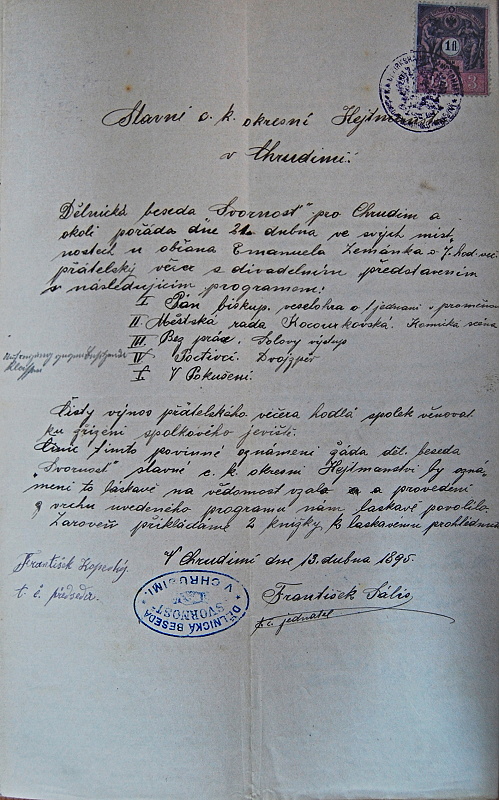 1 fl
Slavné c. k. okresní Hejtman
v Chrudimi.
Dělnická beseda „Svornost" pro Chrudim a
okolí pořádá dne 21. dubna ve svých míst
nostech u občana Emanuela Zemánka o 7. hod več
přátelský večer s divadelním představením
s následujícím programem:
I. Pán biskup. veselohra o 1 jednání s proměnou
II. Městská rada Kocourkovská. Komická scéna
III. Bez práce. Solový výstup
IV. Poctivci. Dvojzpěv
V. V Pokušení.
Čistý výnos přátelského večera hodlá spolek věnovat
ku zřízení spolkového jeviště.
Číníc tímto povinné oznámení žádá děl. beseda
„Svornost" slavné c. k. okresní Hejtmanství by ozná,
mení to láskavě na vědomost vzalo a provedení
z vrchu uvedeného programu nám laskavě povolilo.
Zároveň přikládáme 2 knížky, k laskavému prohlédnutí
V Chrudimi dne 13. dubna 1895.
František Kopecký
t. č. předseda.
DĚLNICKÁ BESEDA SVORNOST V CHRUDIMI.
František Sális
t. č. jednatel